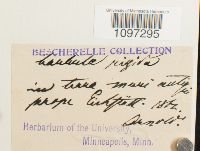 University of Minnesota Herbarium
1097295
BESCHERELLE COLLECTION
barbula rigida
in terra muri
prope Eichstätt. 186
Arnold.
Herbarium of the University,
Minneapolis, Minn.